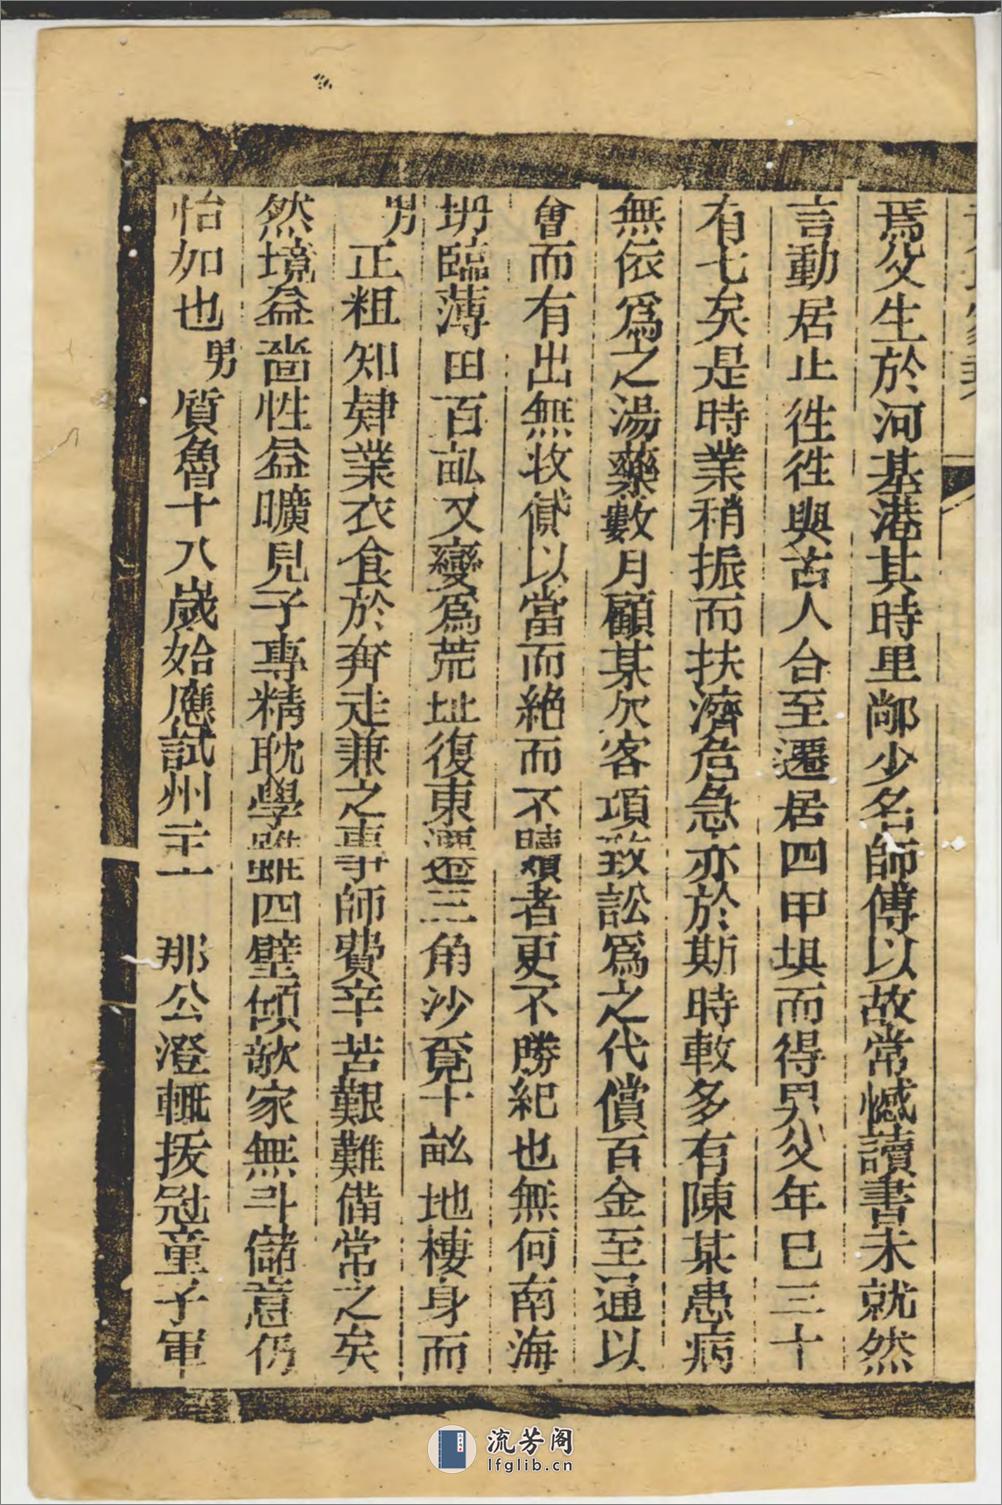 焉父生於河基港其時里鄰少名師傅以故常憾讀書未就然
言動居止徃徃與古人合至遷居四甲埧而得男父年巳三十
有七矣是時業稍振而扶濟危急亦於斯時較多有陳某患病
無依爲之湯藥數月顧某欠客項致訟爲之代償百金至通以
會而有出無收貸以當而絕而不贖者更不勝紀也無何南海
坍臨薄田百畝又變爲荒址復東遷三角沙覔十畝地棲身而
男正粗知肄業衣食於奔走兼之事師費辛苦艱難備常之矣
然境益嗇性益曠見子專精耽學雖四壁傾欹家無斗儲意仍
怡如也男質魯十八歲始應試州主 那公澄輒拔冠童子軍
流芳阁
lfglib.cn